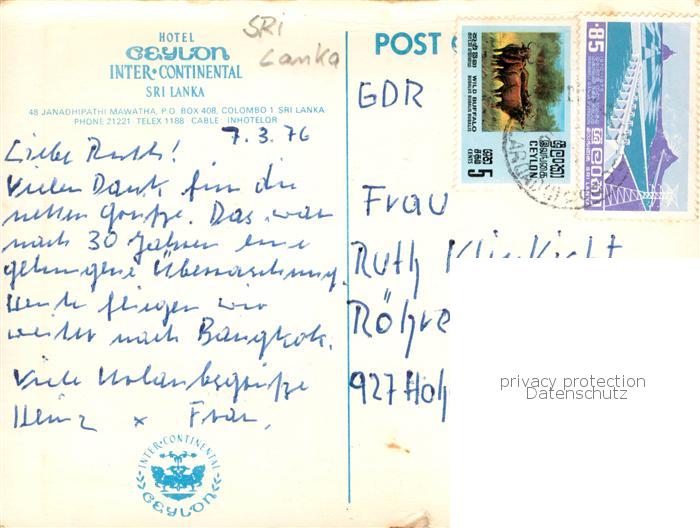 SRI
Lanka
HOTEL
CEYLON
INTER•CONTINENTAL
SRI LANKA
48 JANADHIPATHI MAWATHA, P.O. BOX 408, COLOMBO 1 SRI LANKA
PHONE 21221 TELEX 1188 CABLE: INHOTELOR
7.3.76
Liebe Ruth!
Vielen Dank für die
netten Grüße. Das war
nach 30 Jahren eine
gelungene Überraschung.
Heute fliegen wir
weiter nach Bangkok.
Viele Urlaubsgrüße
Heinz + Frau.
INTER•CONTINENTAL
CEYLON
POST
GDR
Frau
Ruth
Röhre
927 Hoh
WILD BUFFALO
ශ්‍රී ලංකා
இலங்கை
CEYLON
5
CENTS
.85
ශ්‍රී ලංකා
இலங்கை
SRI LANKA
privacy protection
Datenschutz